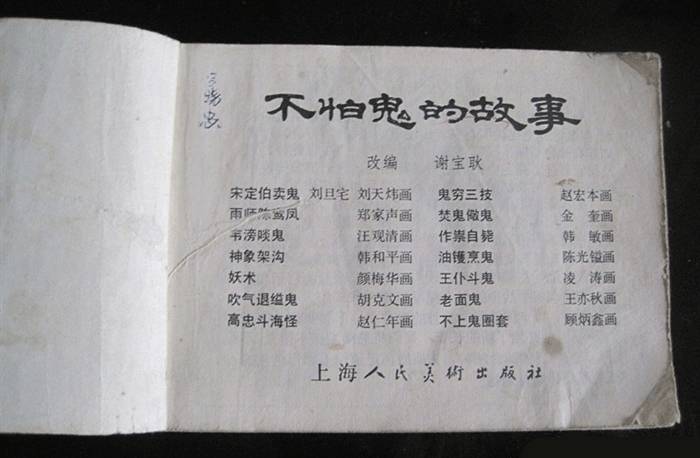 不怕鬼的故事
改编 谢宝耿
宋定伯卖鬼 刘旦宅 刘天炜画 鬼穷三技 赵宏本画
雨师陈鸾凤 郑家声画 焚鬼儆鬼 金奎画
韦滂啖鬼 汪观清画 作祟自毙 韩敏画
神象架沟 韩和平画 油镬烹鬼 陈光镒画
妖术 颜梅华画 王仆斗鬼 凌涛画
吹气退缢鬼 胡克文画 老面鬼 王亦秋画
高忠斗海怪 赵仁年画 不上鬼圈套 顾炳鑫画
上海人民美術出版社